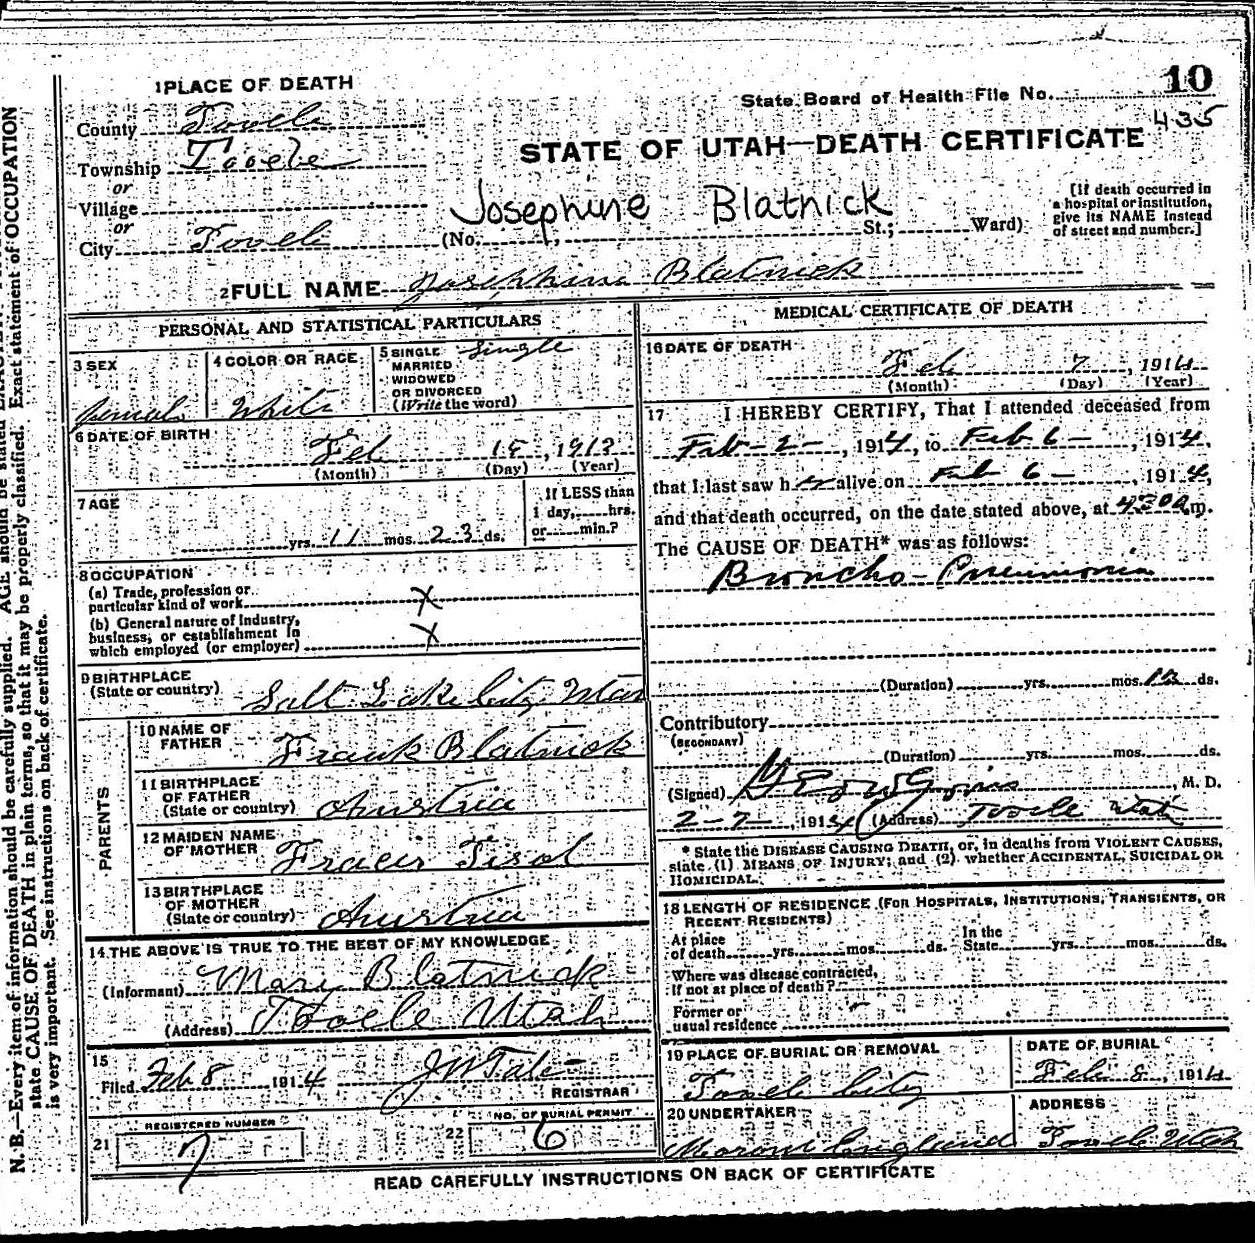 10
State Board of Health File No.
435
1 PLACE OF DEATH
County Tooele
Township Tooele
or
Village
or
City Tooele
STATE OF UTAH—DEATH CERTIFICATE
Josephine Blatnick
(No. , St.; Ward)
[If death occurred in
a hospital or institution,
give its NAME instead
of street and number.]
2 FULL NAME Josephine Blatnick
PERSONAL AND STATISTICAL PARTICULARS
3 SEX
Female
4 COLOR OR RACE
White
5 SINGLE Single
MARRIED
WIDOWED
OR DIVORCED
(Write the word)
6 DATE OF BIRTH
Feb 15, 1913
(Month) (Day) (Year)
7 AGE
yrs. 11 mos. 23 ds.
If LESS than
1 day, hrs.
or min.?
8 OCCUPATION
(a) Trade, profession or
particular kind of work X
(b) General nature of Industry,
business, or establishment in
which employed (or employer) X
9 BIRTHPLACE
(State or country) Salt Lake City Utah
PARENTS
10 NAME OF
FATHER Frank Blatnick
11 BIRTHPLACE
OF FATHER
(State or country) Austria
12 MAIDEN NAME
OF MOTHER
13 BIRTHPLACE
OF MOTHER
(State or country) Austria
14 THE ABOVE IS TRUE TO THE BEST OF MY KNOWLEDGE
(Informant) Mary Blatnick
(Address) Tooele Utah
15
Filed Feb 8 1914
REGISTRAR
21 REGISTERED NUMBER
7
22 NO. OF BURIAL PERMIT
6
MEDICAL CERTIFICATE OF DEATH
16 DATE OF DEATH
Feb 7, 1914
(Month) (Day) (Year)
17 I HEREBY CERTIFY, That I attended deceased from
Feb-2-, 1914, to Feb 6-, 1914,
that I last saw her alive on Feb 6-, 1914,
and that death occurred, on the date stated above, at 430 a.m.
The CAUSE OF DEATH* was as follows:
Broncho-Pneumonia
(Duration) yrs. mos. ds.
Contributory
(SECONDARY)
(Duration) yrs. mos. ds.
(Signed) , M. D.
2-7-, 1914 (Address) Tooele Utah
* State the DISEASE CAUSING DEATH, or, in deaths from VIOLENT CAUSES,
state (1) MEANS OF INJURY; and (2) whether ACCIDENTAL, SUICIDAL OR
HOMICIDAL.
18 LENGTH OF RESIDENCE (FOR HOSPITALS, INSTITUTIONS, TRANSIENTS, OR
RECENT RESIDENTS)
At place
of death yrs. mos. ds.
In the
State yrs. mos. ds.
Where was disease contracted,
if not at place of death?
Former or
usual residence
19 PLACE OF BURIAL OR REMOVAL
Tooele City
DATE OF BURIAL
Feb 8, 1914
20 UNDERTAKER
Moroni England
ADDRESS
Tooele Utah
READ CAREFULLY INSTRUCTIONS ON BACK OF CERTIFICATE
N. B.—Every item of information should be carefully supplied. AGE should be stated
state CAUSE OF DEATH in plain terms, so that it may be properly classified. Exact statement of OCCUPATION
is very important. See instructions on back of certificate.